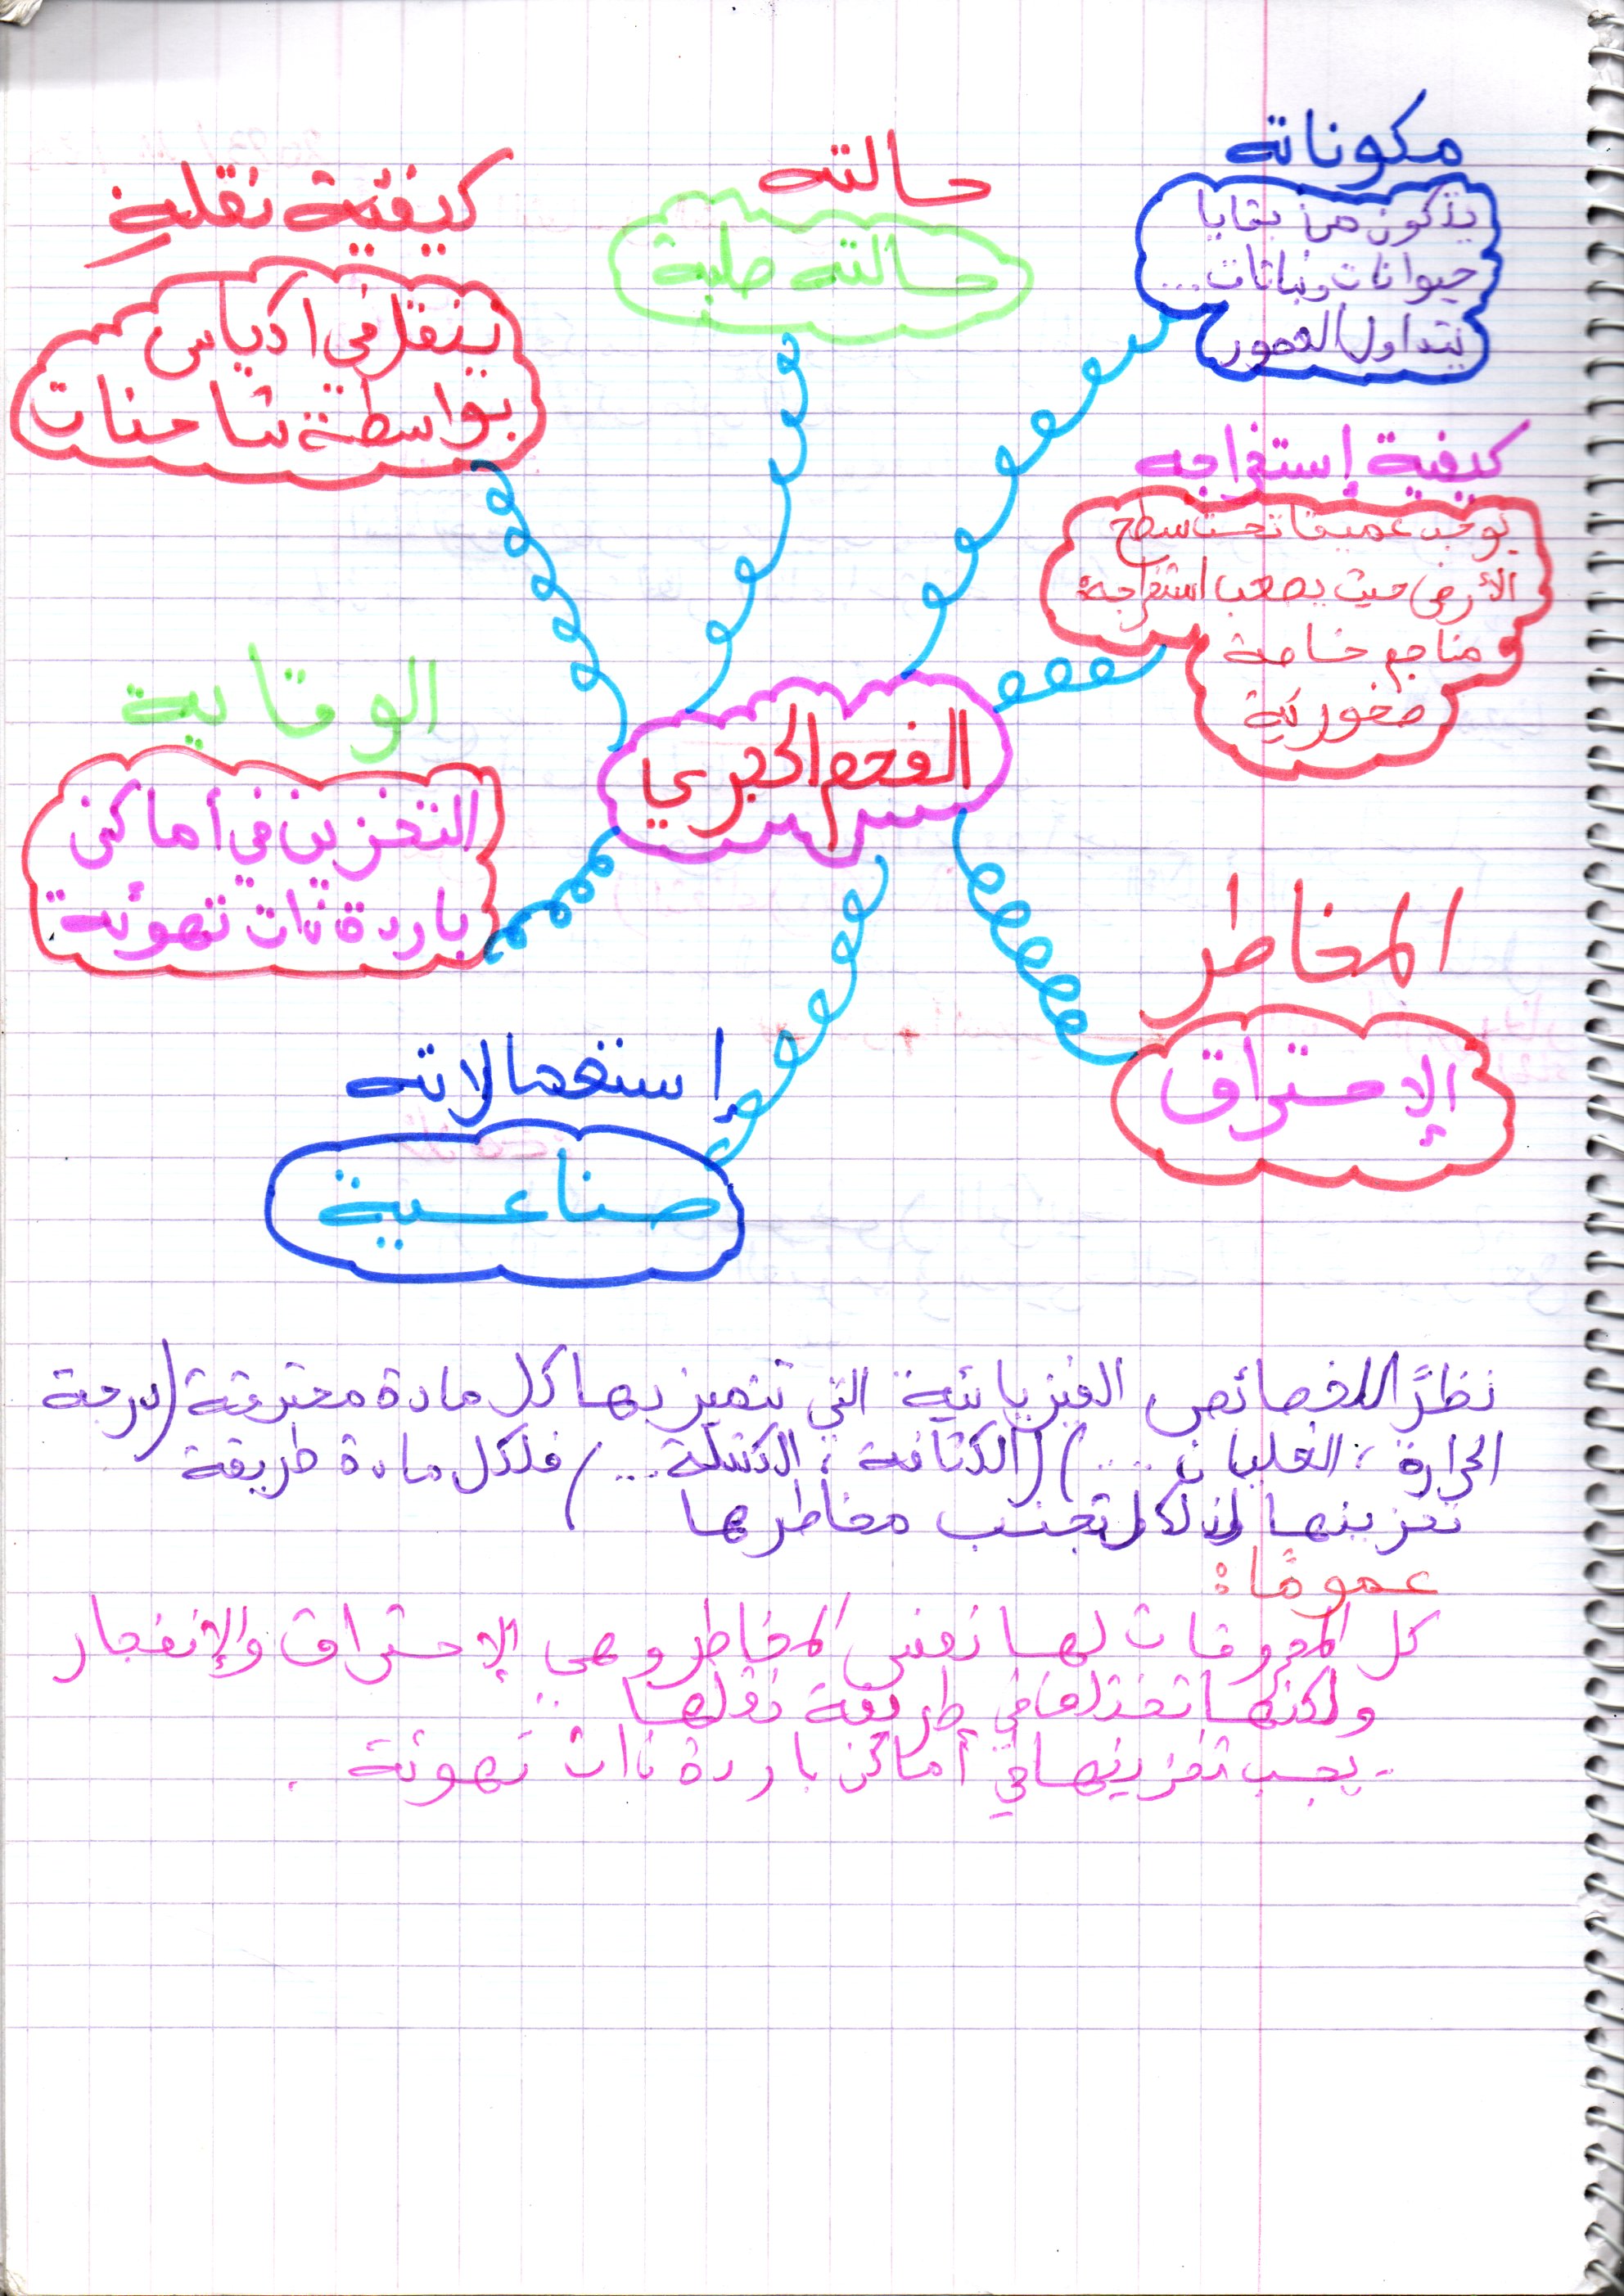 مكوناته
يتكون من بقايا
حيوانات ونباتات...
بتداول العصور
حالته
حالته صلبة
كيفية نقله
ينقل في اكياس
بواسطة شاحنات
كيفية إستخراجه
يوجد عميقا تحت سطح
الأرض حيث يصعب استخراجه
مناجم خاصة
الفحم الحجري
الوقاية
التخزين في اماكن
باردة ذات تهوئة
المخاطر
الإحتراق
إستعمالاته
صناعية
نظرًا للخصائص الفيزيائية التي تتميز بها كل مادة محترقة (درجة
الحرارة ، الغليان ....) (الكثافة ، الكتلة ...) فلكل مادة طريقة
تخزينها لذلك تجنب مخاطرها
عمومًا:
كل المحروقات لها نفس المخاطر وهي الإحتراق والإنفجار
ولكنها تختلف في طريقة نقلها
- يجب تخزينها في أماكن باردة ذات تهوئة .